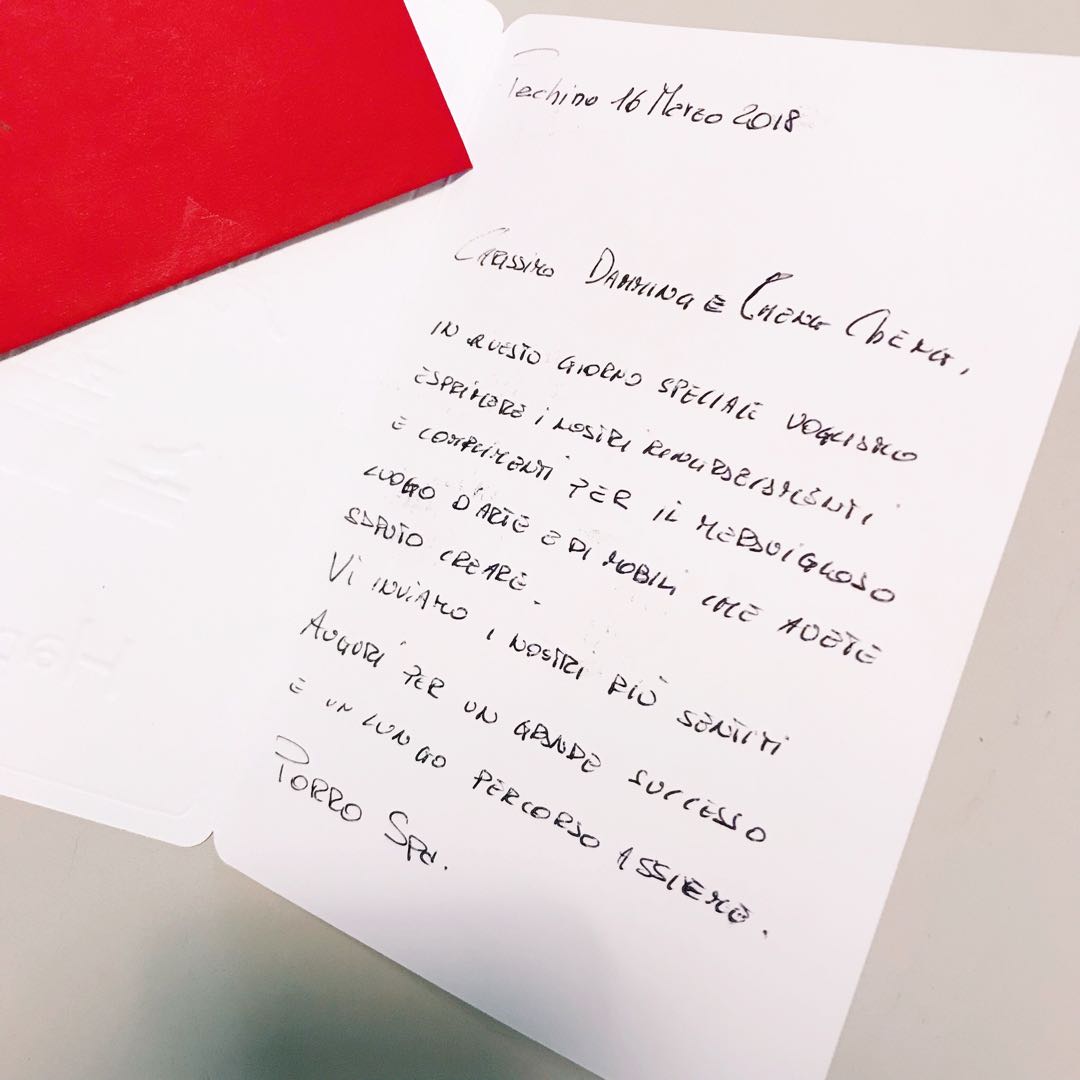 Pechino 16 Marzo 2018
Carissimo Danming e Cheng Cheng,
In questo giorno speciale vogliamo
esprimere i nostri ringraziamenti
e complimenti per il meraviglioso
luogo d'arte e di mobili che avete
saputo creare.
Vi inviamo i nostri più sentiti
Auguri per un grande successo
e un lungo percorso assieme.
Porro Spa.